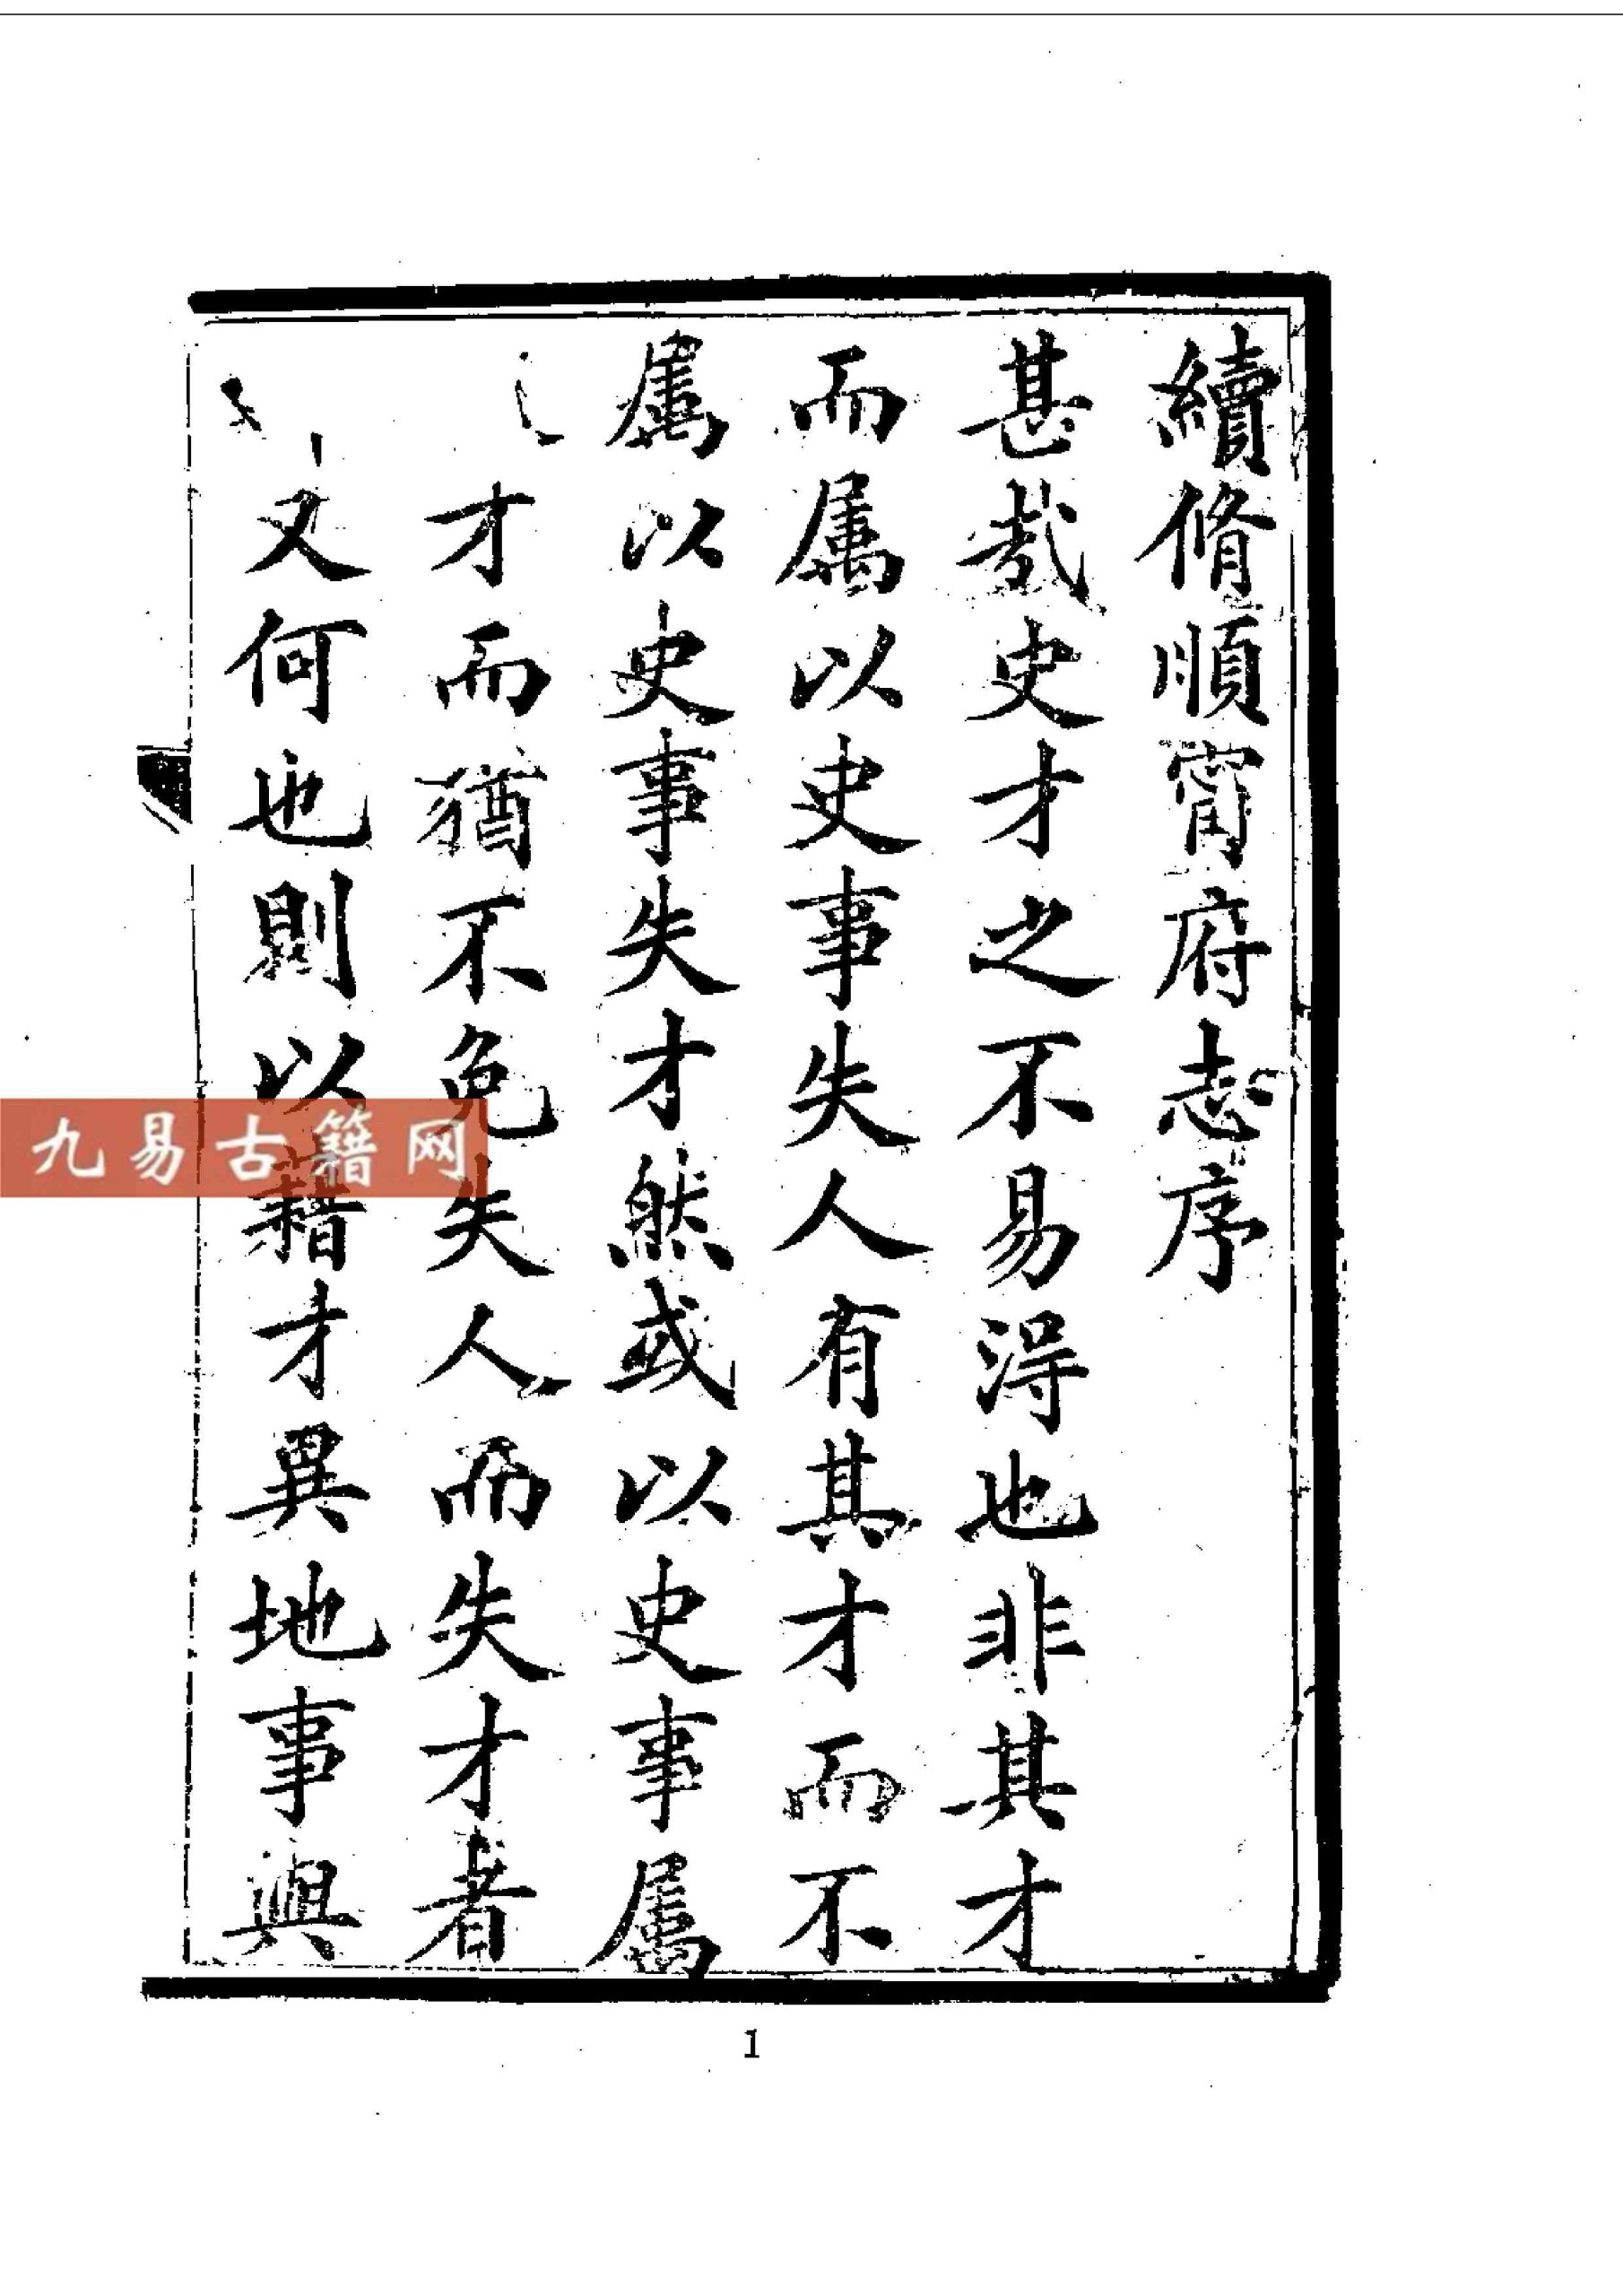 續脩順甯府志序
甚哉史才之不易得也非其才
而属以史事失人有其才而不
属以史事失才然或以史事属
才而猶不免失人而失才者
又何也則以藉才異地事與
九易古籍网
1